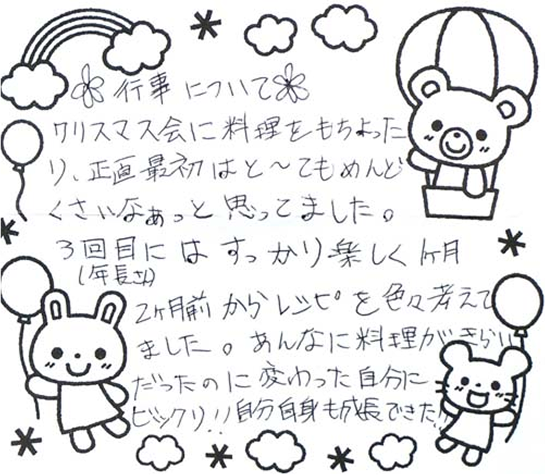 行事について
クリスマス会に料理をもちよった
り、正直最初はと〜てもめんど
くさいなぁっと思ってました。
3回目にはすっかり楽しく1ヶ月
(年長さん)
2ヶ月前からレシピを色々考えて
ました。あんなに料理がきらい
だったのに変わった自分に
ビックリ!!自分自身も成長できた!!